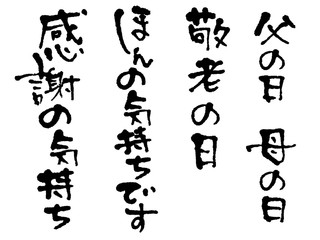 父の日 母の日
敬老の日
ほんの気持ちです
感謝の気持ち